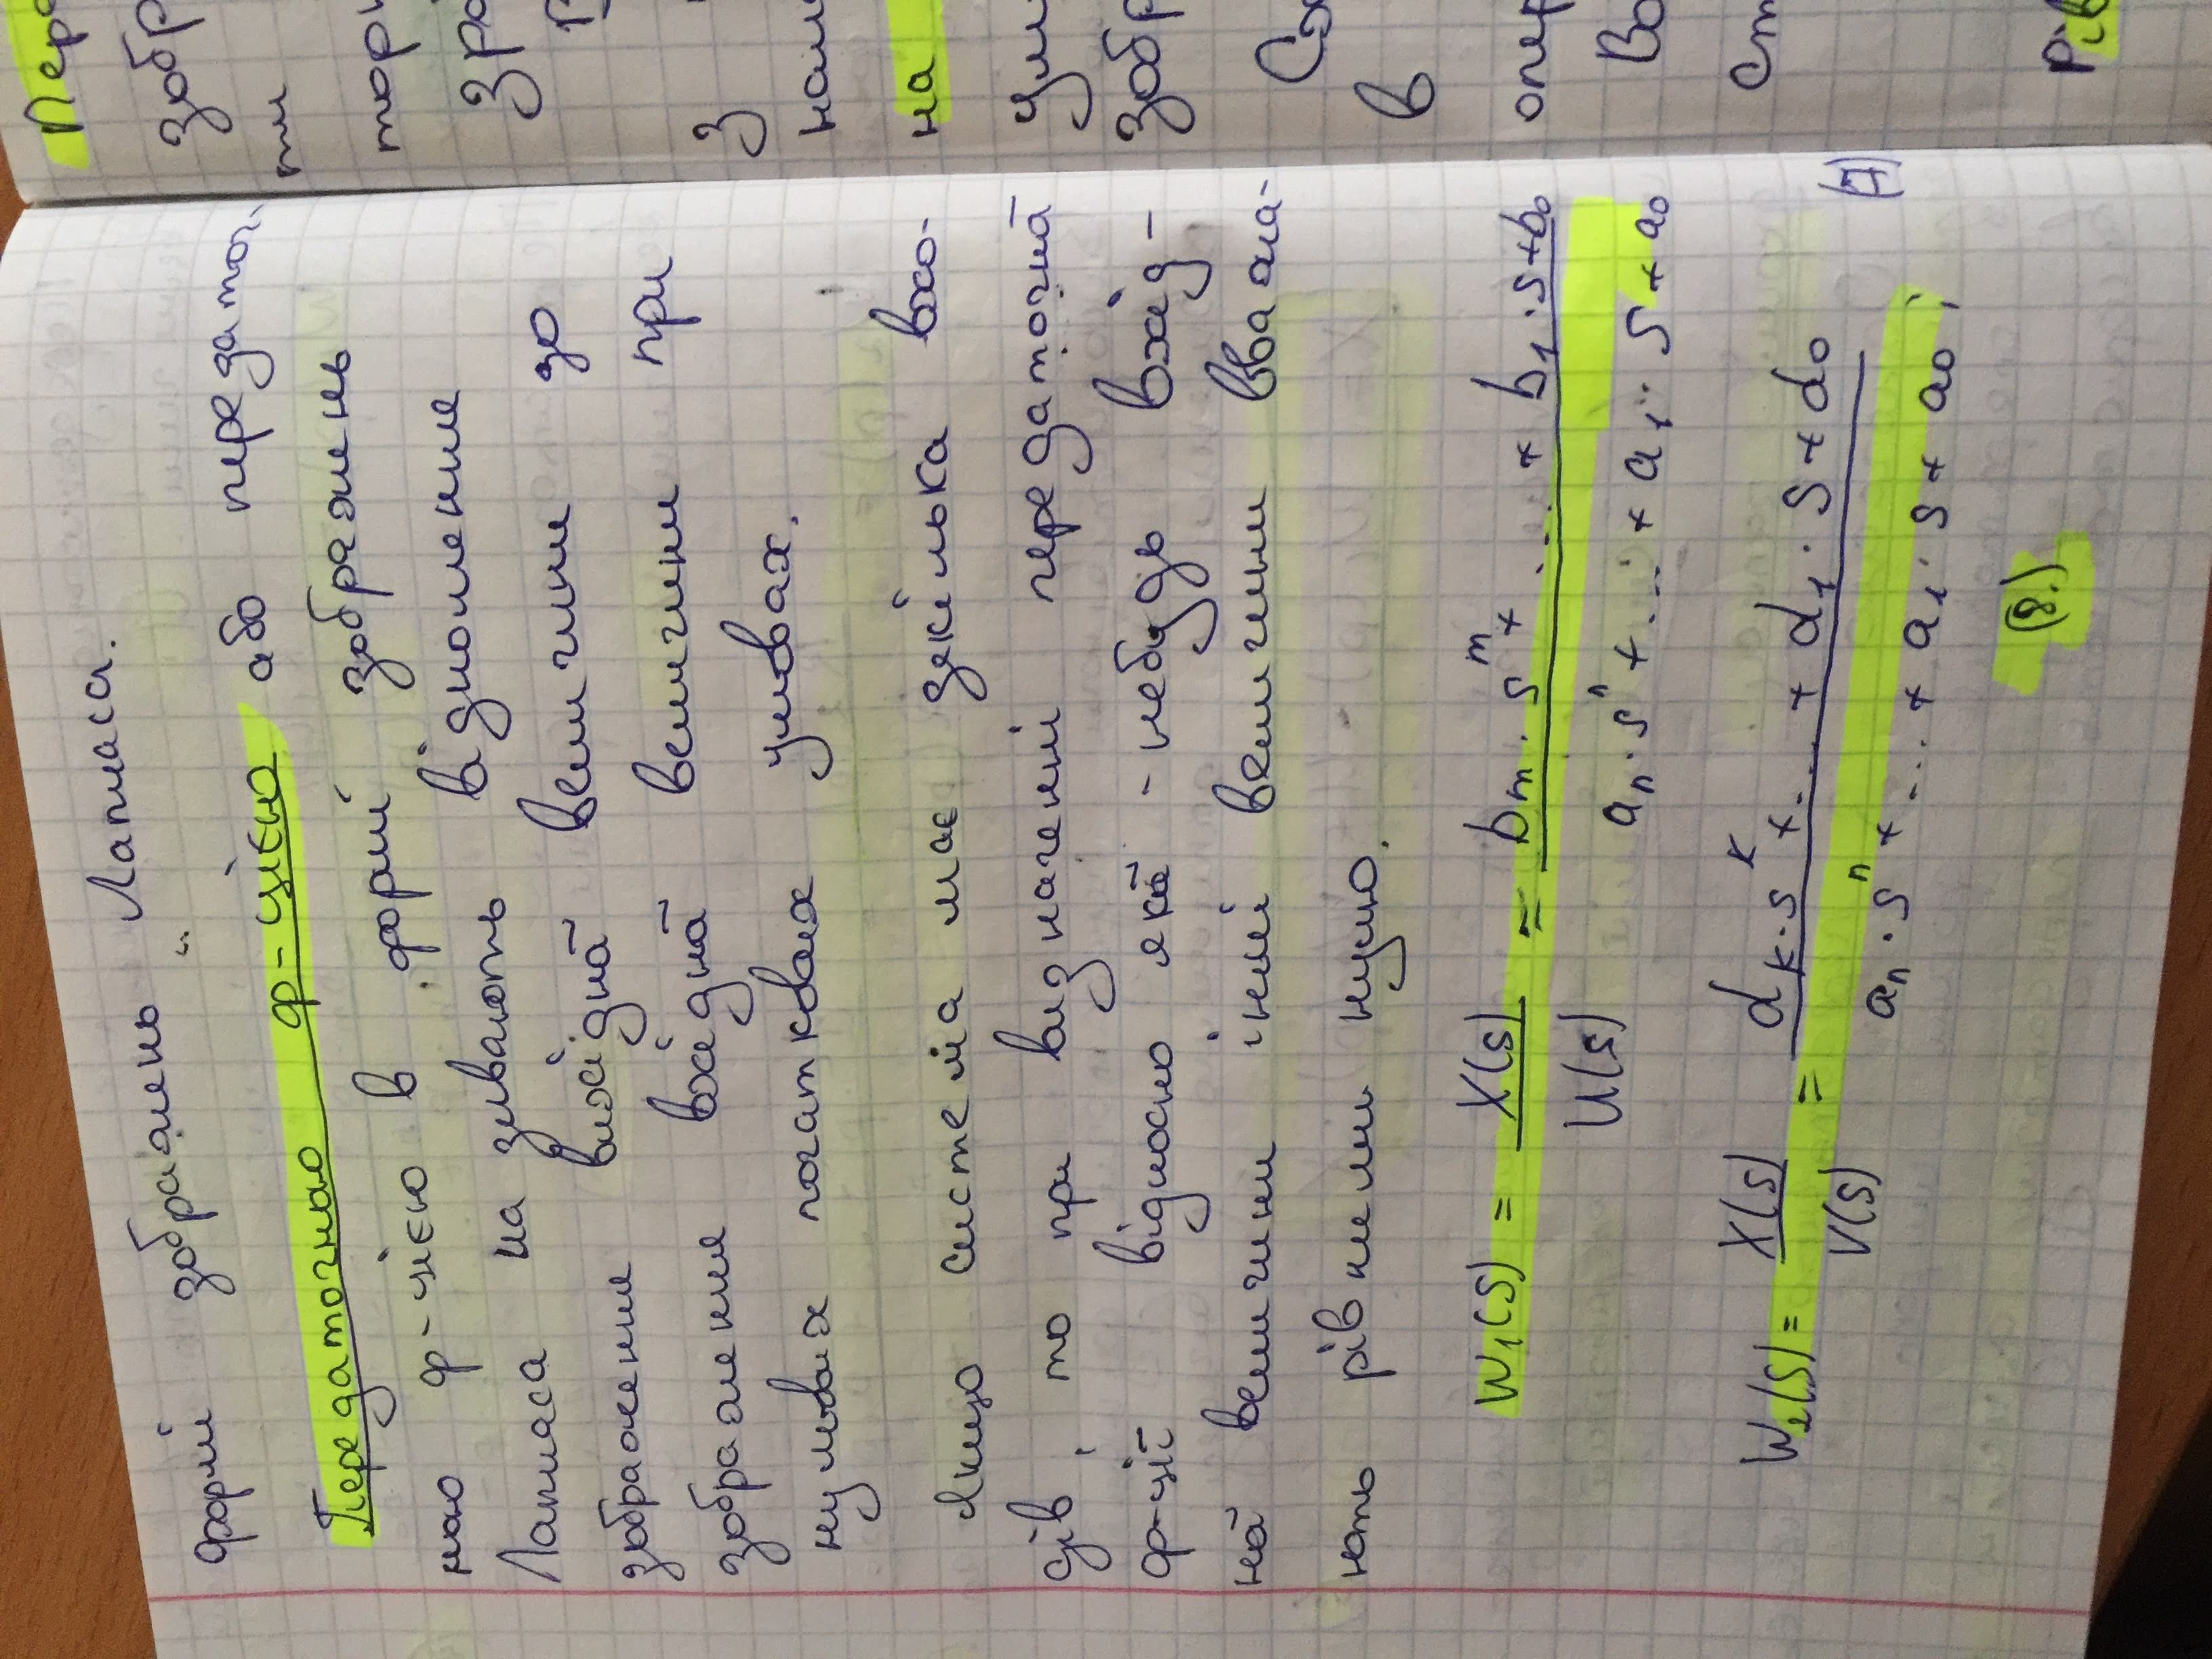 формі зображень Лапласа.
Передаточною ф-цією або передаточ-
ною ф-цією в формі зображень
Лапласа називають відношення
зображення вихідної величини до
зображення вхідної величини при
нульових початкових умовах.
Якщо система має декілька вхо-
дів, то при визначенні передаточної
ф-ції відносно якої-небудь вхід-
ної величини інші величини вважа-
ють рівними нулю.
W₁(S) = X(s) / U(s) = bₘ·sᵐ + ... + b₁·s + b₀ / aₙ·sⁿ + ... + a₁·S + a₀
W₂(S) = X(s) / V(s) = dₖ·sᵏ + ... + d₁·S + d₀ / aₙ·sⁿ + ... + a₁·s + a₀ ;
(7)
(8.)
Пере
зобр
ти
торн
зра
В
з
нал
на
ум
зобр
Сх
в
опер
Во
ст
рів